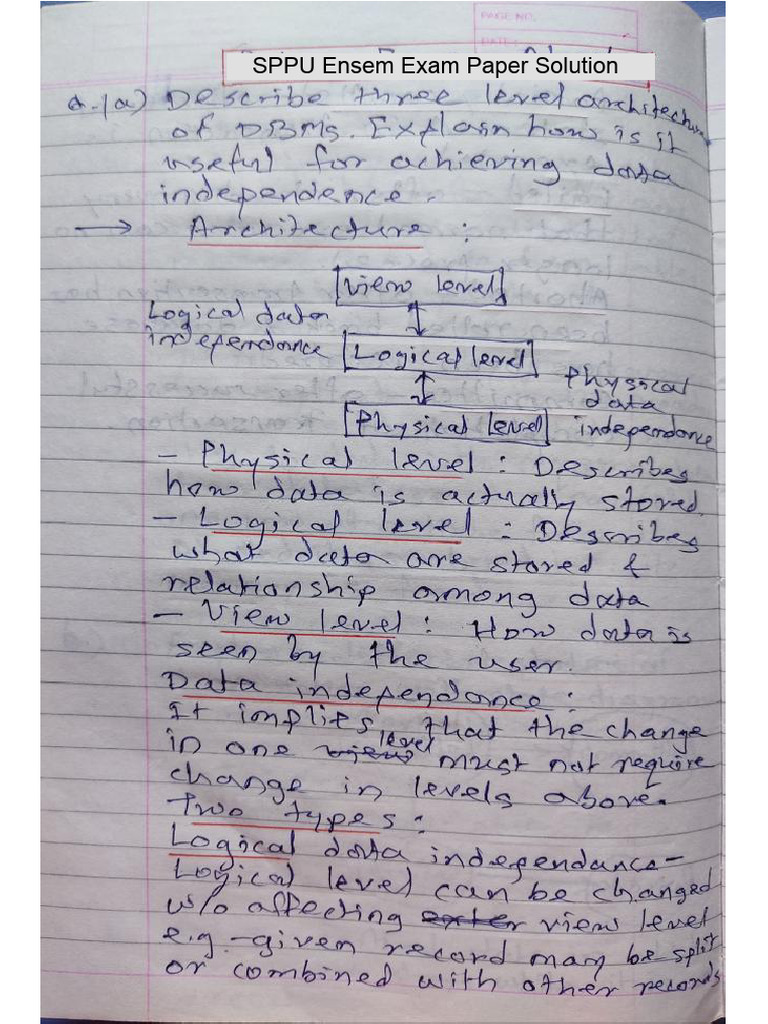 PAGE NO.
DATE:
SPPU Ensem Exam Paper Solution
Q.1a) Describe three level architecture
of DBMS. Explain how is it
useful for achieving data
independence.
→ Architecture :
View level
Logical data
independance
Logical level
Physical
data
independance
Physical level
- Physical level : Describes
how data is actually stored.
- Logical level : Describes
what data are stored &
relationship among data
- View level : How data is
seen by the user.
Data independance :
It implies that the change
in one level must not require
change in levels above.
Two types :
Logical data independance -
Logical level can be changed
w/o affecting view level
e.g.-given record may be split
or combined with other records